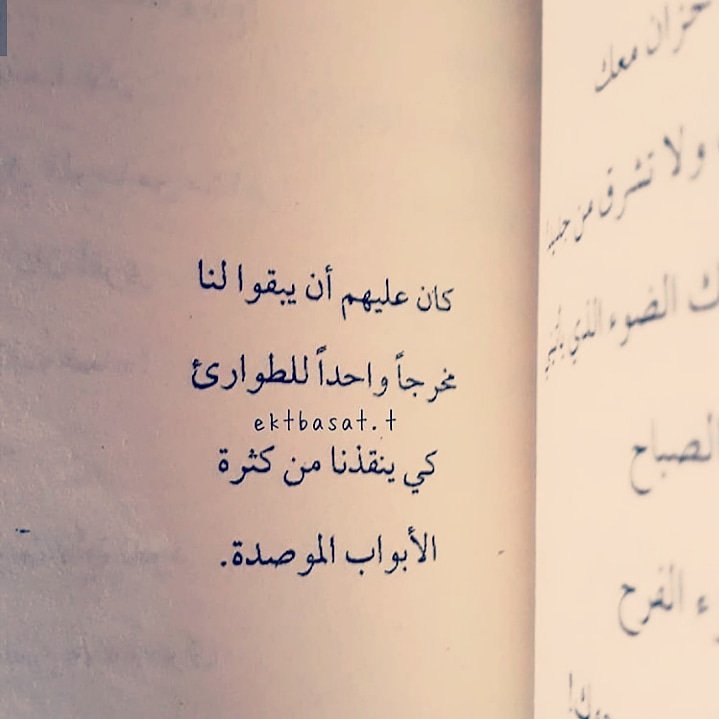 كان عليهم أن يبقوا لنا
مخرجاً واحداً للطوارئ
ektbasat.t
كي ينقذنا من كثرة
الأبواب الموصدة.
معك
ولا تشرق من
الضوء الذي
الصباح
الفرح